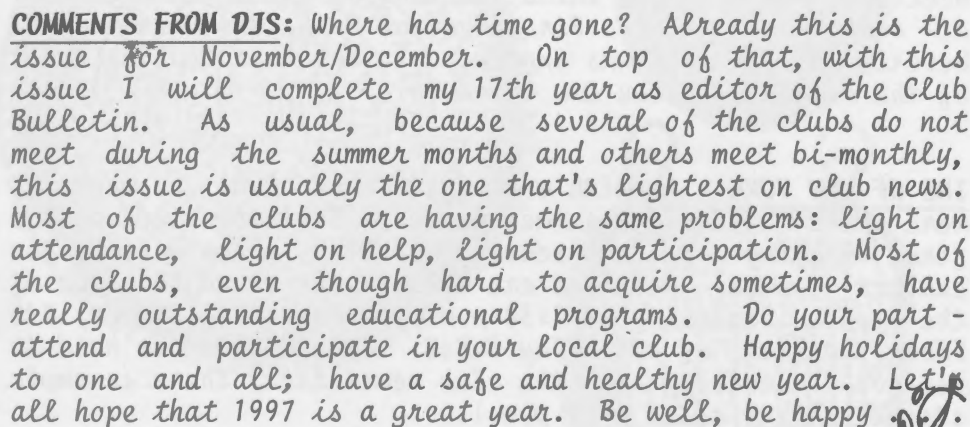 COMMENTS FROM DJS: Where has time gone? Already this is the
issue for November/December. On top of that, with this
issue I will complete my 17th year as editor of the Club
Bulletin. As usual, because several of the clubs do not
meet during the summer months and others meet bi-monthly,
this issue is usually the one that's lightest on club news.
Most of the clubs are having the same problems: light on
attendance, light on help, light on participation. Most of
the clubs, even though hard to acquire sometimes, have
really outstanding educational programs. Do your part -
attend and participate in your local club. Happy holidays
to one and all; have a safe and healthy new year. Let's
all hope that 1997 is a great year. Be well, be happy . . .